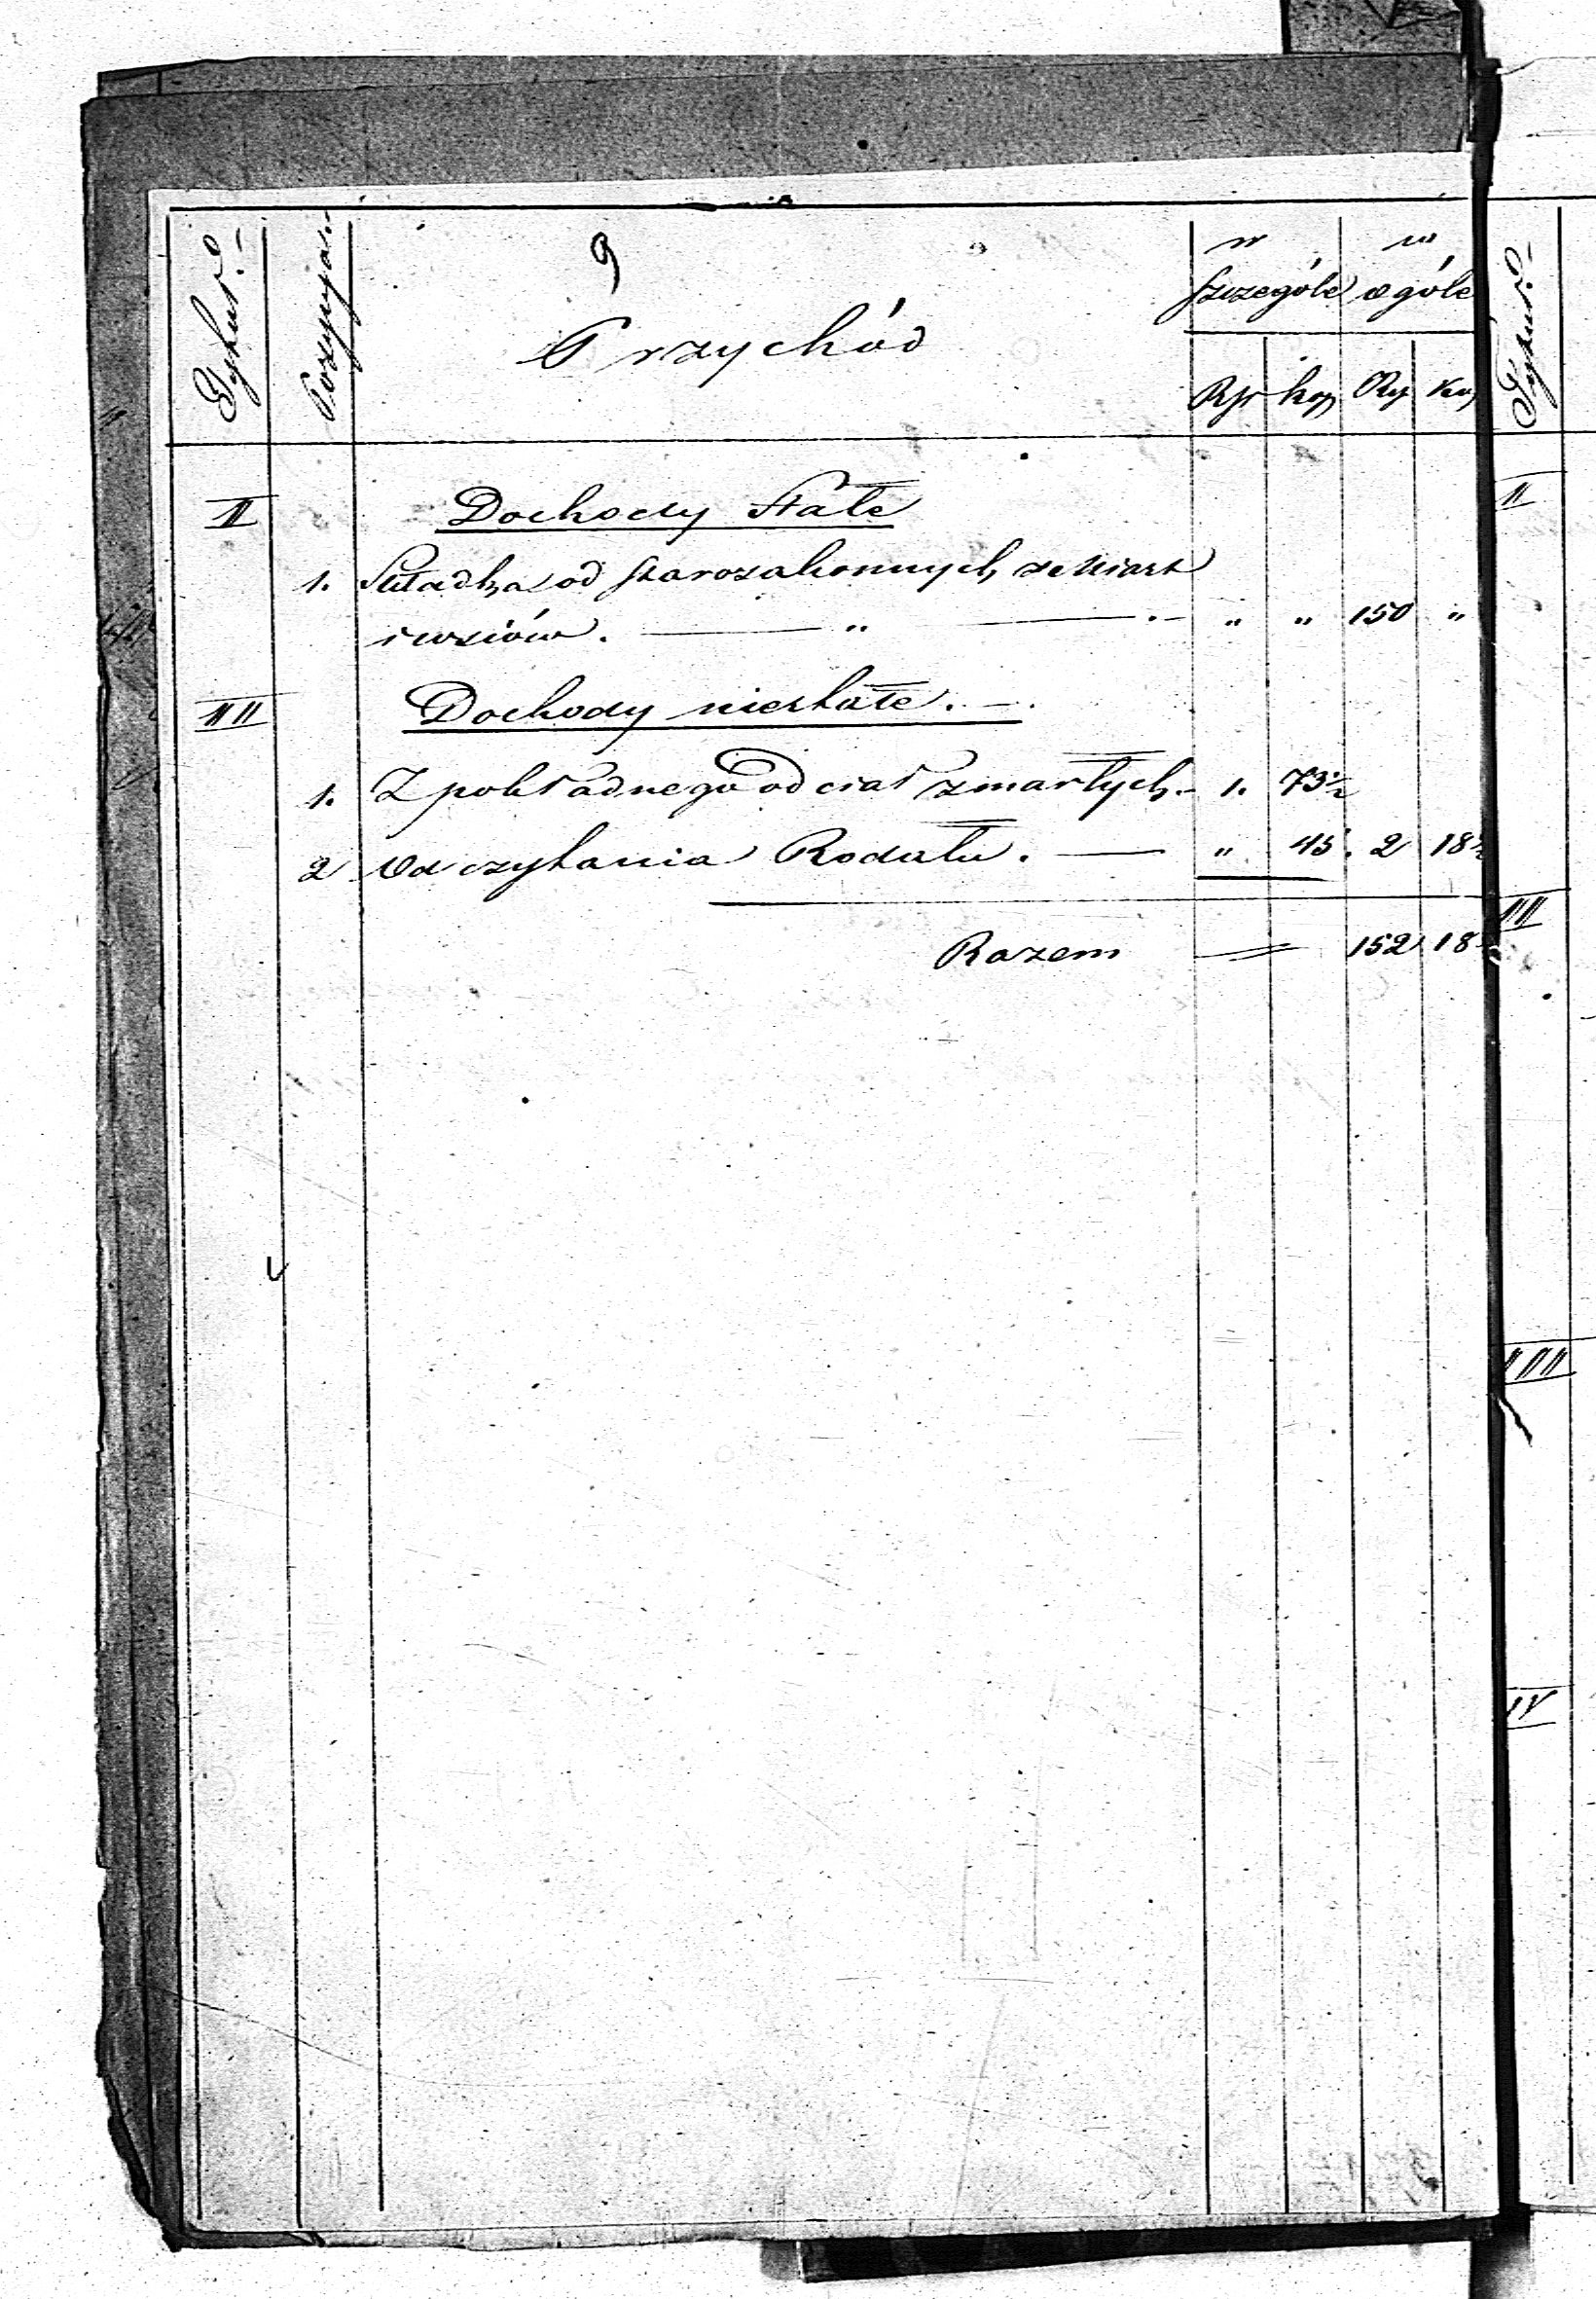 9
Tytuł.
Pozycja.
Przychód
w szczególe
w ogóle
Rsr kop Rsr kop
II Dochody Stałe
1. Składka od starozakonnych z Miast
i wsiów. — " — " " 150 "
III Dochody niestałe. —
1. Z pokładnego od ciał zmarłych. 1. 73½
2 Od czytania Rodału. — " 45. 2 18½
Razem — 152 18½
Tytuł.
II
III
IV